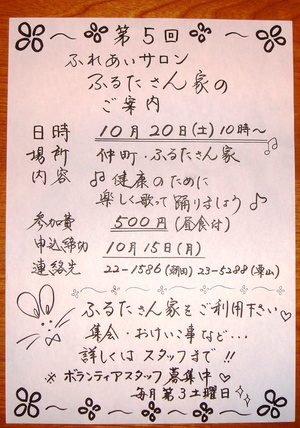 第5回
ふれあいサロン
ふるたさん家の
ご案内
日時 10月20日(土) 10時〜
場所 仲町・ふるたさん家
内容 健康のために
楽しく歌って踊りましょう
参加費 500円(昼食付)
申込締切 10月15日(月)
連絡先 22-1586 23-5288(栗山)
ふるたさん家をご利用下さい
集会・おけいこ事など…
詳しくはスタッフまで!!
※ボランティアスタッフ募集中
毎月第3土曜日